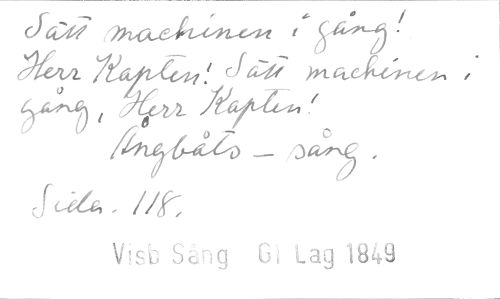 Sätt machinen i gång!
Herr Kapten! Sätt machinen i
gång, Herr Kapten!
Ångbåts – sång.
Sida. 118.
Visb Sång Gl Lag 1849